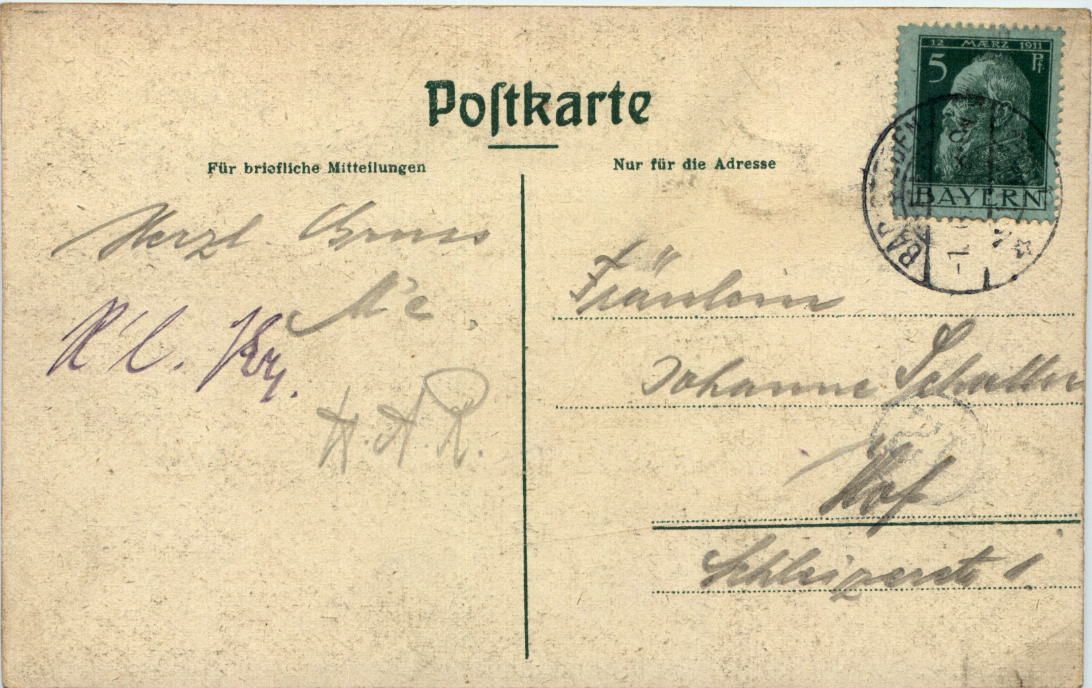 Poſtkarte
Für briefliche Mitteilungen
Nur für die Adresse
12 MÆRZ 1911
5 Pf
BAYERN
Herzl. Gruss
Fräulein
Johanne Schaller
Hof
Schleizerstr 1.
H. A. R.